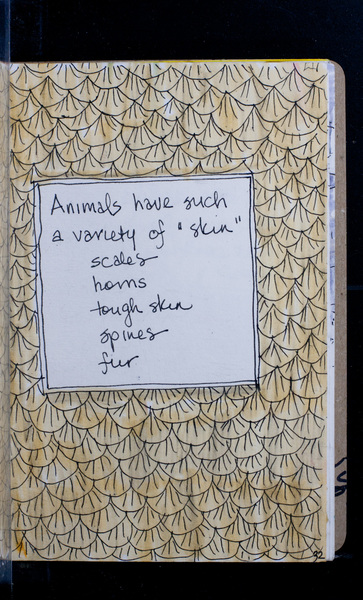 Animals have such
a variety of "skin"
scales
horns
tough skin
spines
fur
32